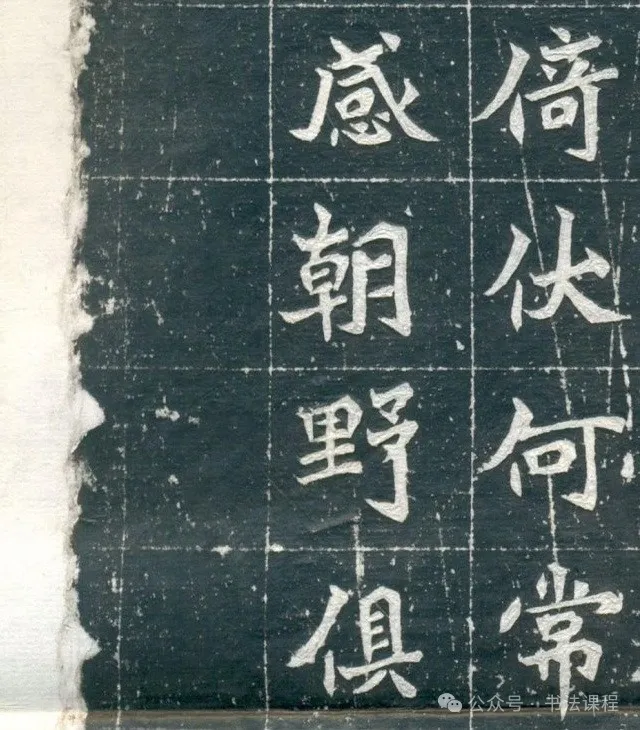 倚伏何常
感朝野俱
公众号 · 书法课程